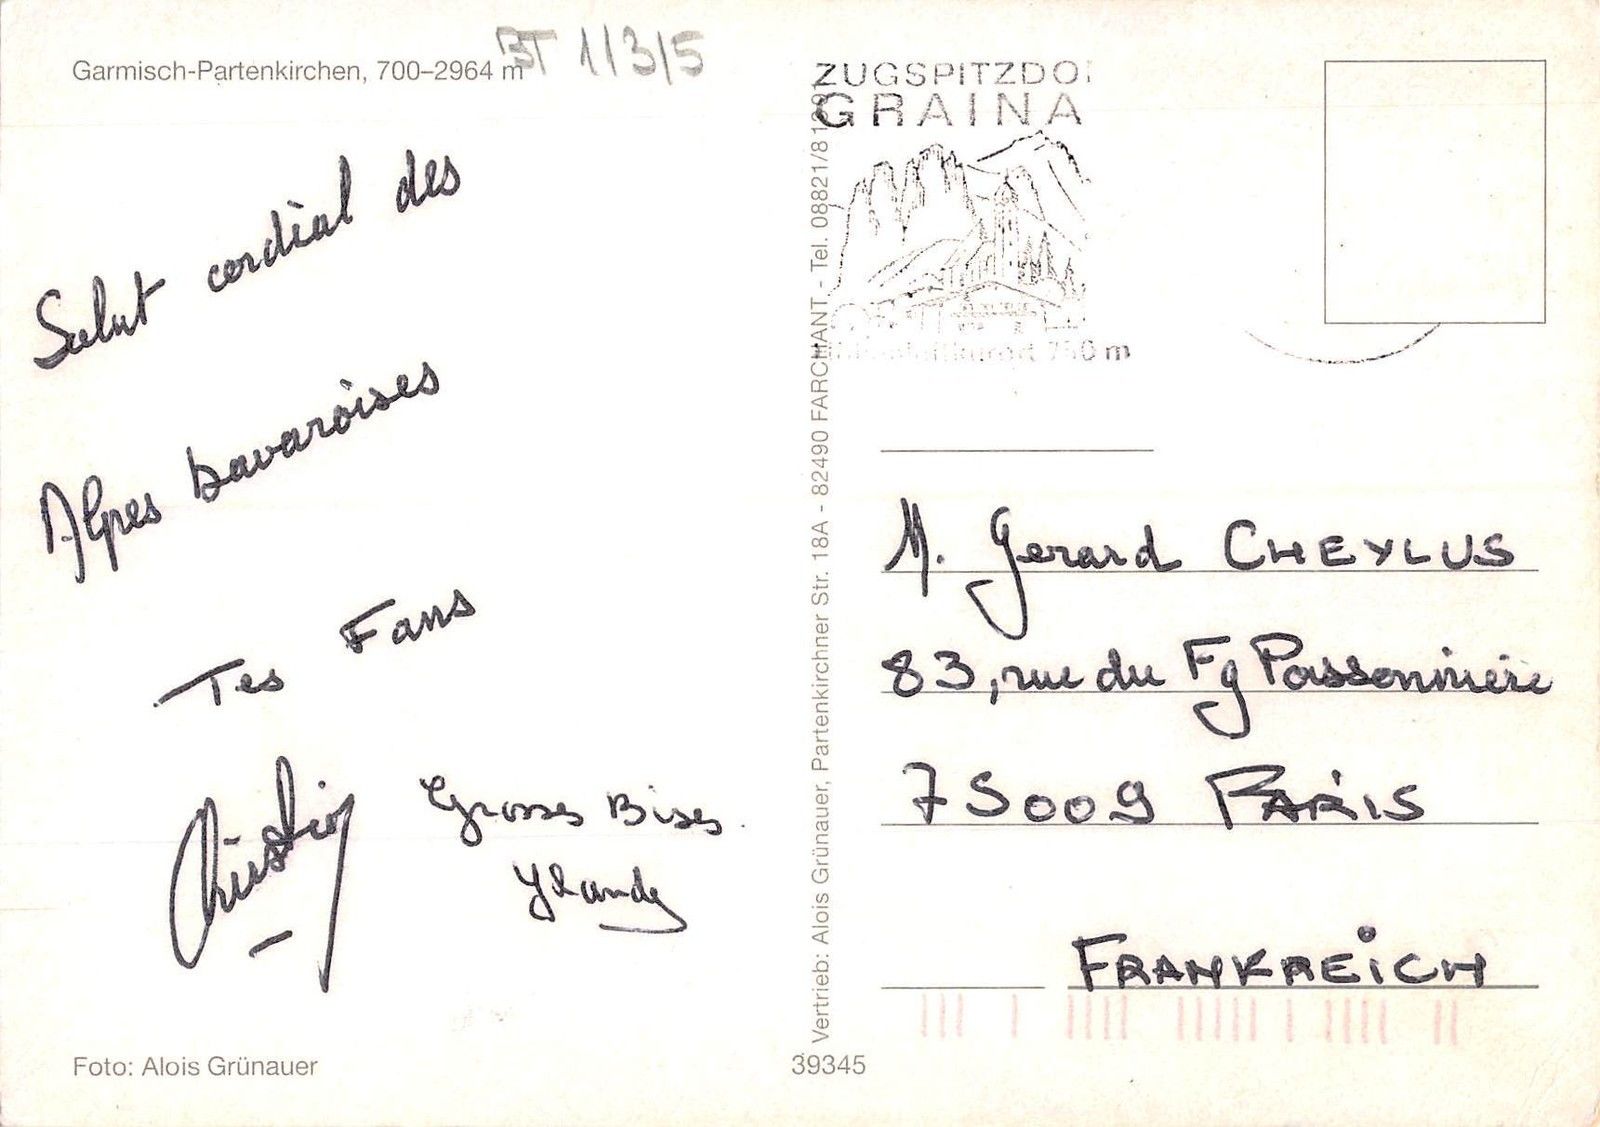 Garmisch-Partenkirchen, 700–2964 m
BT 113/5
Salut cordial des
Alpes bavaroises
Tes Fans
Christian
Grosses Bises.
Foto: Alois Grünauer
39345
Vertrieb: Alois Grünauer, Partenkirchner Str. 18A - 82490 FARCHANT - Tel. 08821/81
ZUGSPITZDO
GRAINA
m
M. Gerard CHEYLUS
83, rue du Fg Poissonnière
75009 PARIS
FRANKREICH